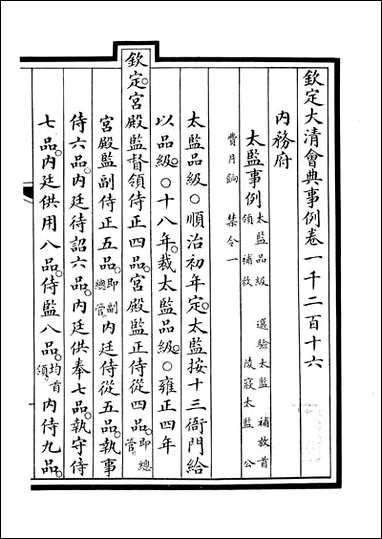 欽定大清會典事例卷一千二百十六
內務府
太監事例太監品級 選驗太監 補放首
領補放 陵寢太監 公
費月餉 禁令一
太監品級○順治初年定。太監按十三衙門給
以品級○十八年。裁太監品級○雍正四年
欽定。宮殿監督領侍正四品。宮殿監正侍從四品。即總管。
宮殿監副侍正五品。即副總管內廷侍從五品。執事
侍六品。內廷待詔六品。內廷供奉七品。執守侍
七品。內廷供用八品。侍監八品。均首領。內侍九品。